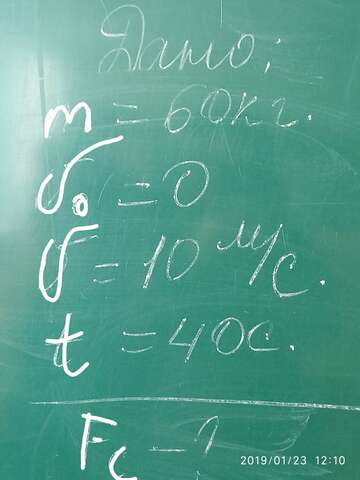 Дано:
m = 60кг.
υ₀ = 0
υ = 10 м/с.
t = 40с.
Fc - ?
2019/01/23 12:10